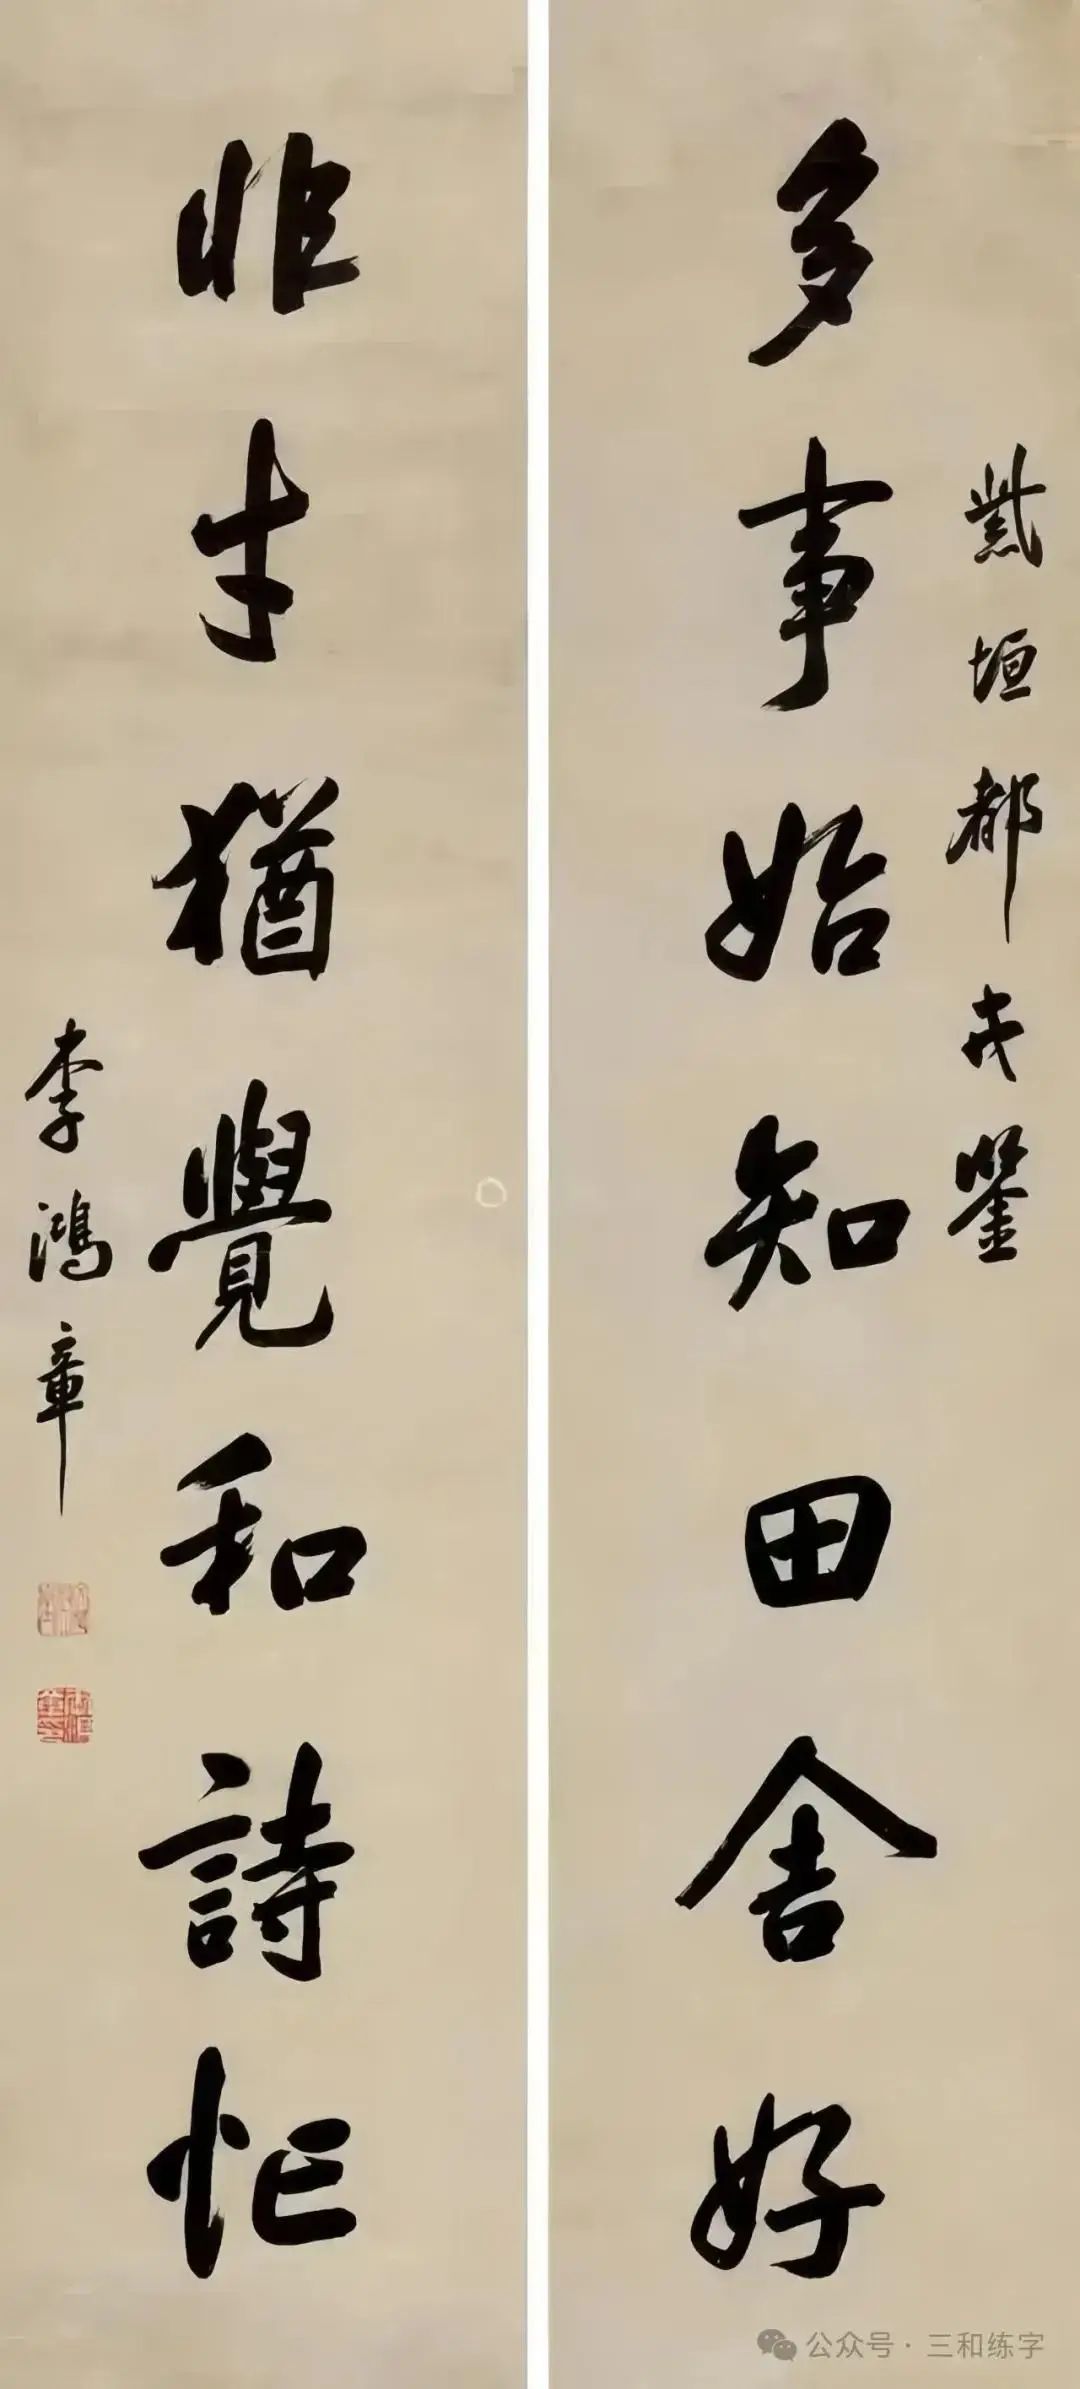 紫垣都戎鑒
多事始知田舍好
非才猶覺和詩忙
李鴻章
公众号 · 三和练字